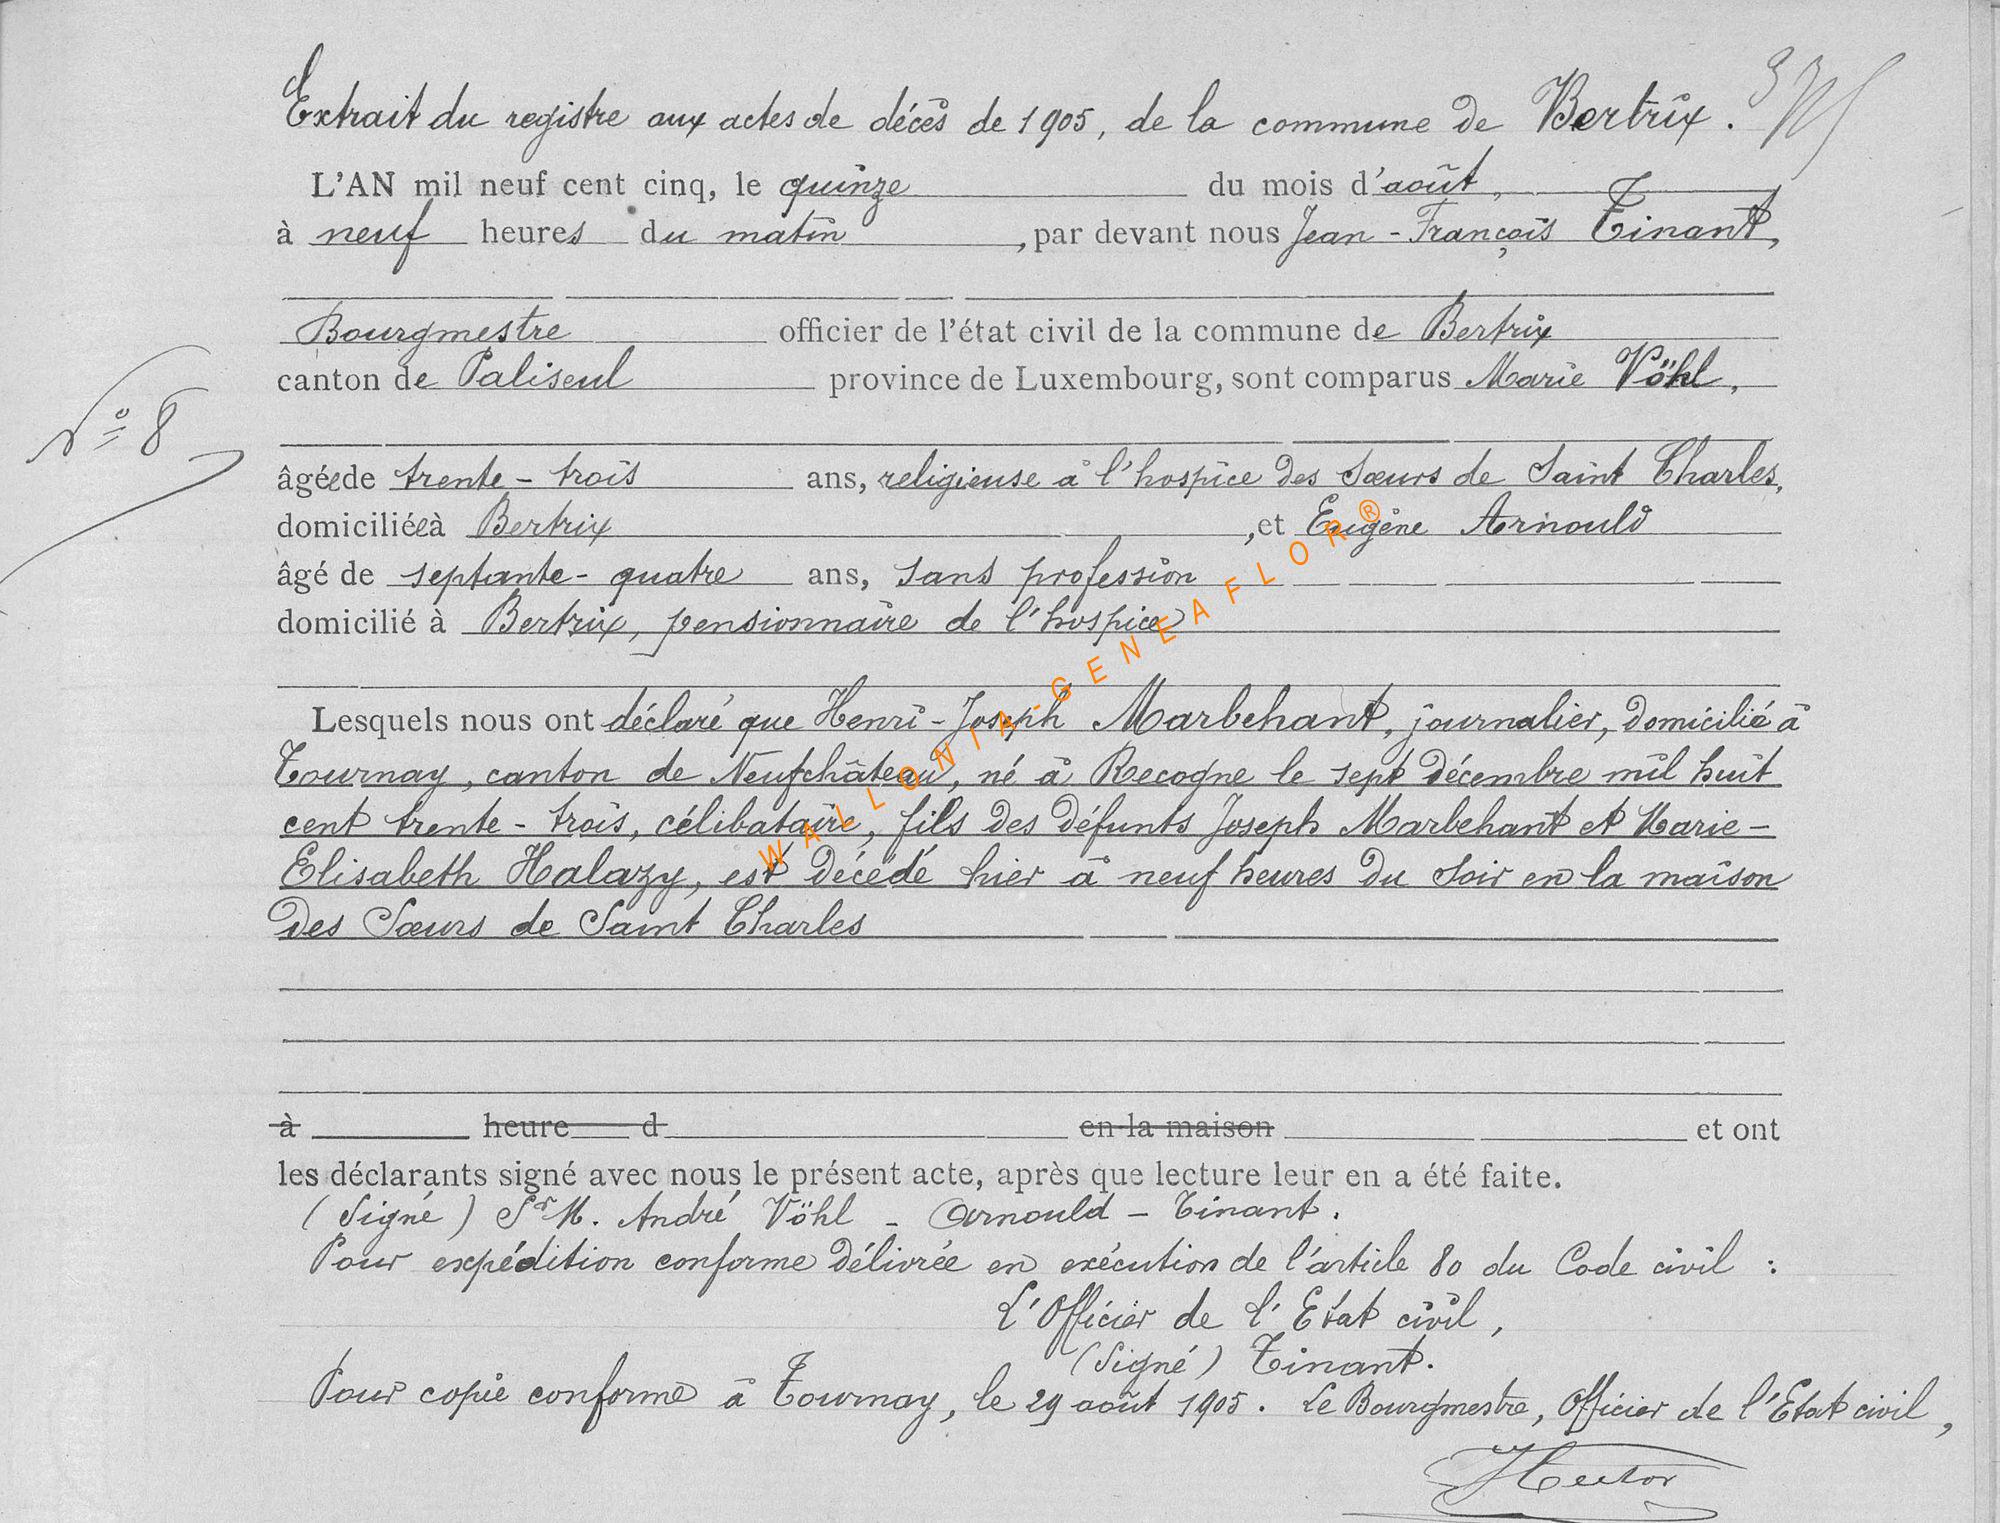 Extrait du registre aux actes de décès de 1905, de la commune de Bertrix.
L'AN mil neuf cent cinq, le quinze du mois d'août,
à neuf heures du matin, par devant nous Jean-François Tinant,
Bourgmestre officier de l'état civil de la commune de Bertrix
canton de Paliseul province de Luxembourg, sont comparus Marie Vöhl,
N° 8
âgée de trente-trois ans, religieuse à l'hospice des Sœurs de Saint Charles,
domiciliée à Bertrix, et Eugène Arnould
âgé de septante-quatre ans, sans profession
domicilié à Bertrix, pensionnaire de l'hospice
Lesquels nous ont déclaré que Henri-Joseph Marbehant, journalier, domicilié à
Tournay, canton de Neufchâteau, né à Recogne le sept décembre mil huit
cent trente-trois, célibataire, fils des défunts Joseph Marbehant et Marie-
Elisabeth Halazy, est décédé hier à neuf heures du soir en la maison
des Sœurs de Saint Charles
à heure d en la maison et ont
les déclarants signé avec nous le présent acte, après que lecture leur en a été faite.
(Signé) Sr M. André Vöhl - Arnould - Tinant.
Pour expédition conforme délivrée en exécution de l'article 80 du Code civil :
L'Officier de l'Etat civil,
(Signé) Tinant.
Pour copie conforme à Tournay, le 29 août 1905. Le Bourgmestre, Officier de l'Etat civil,
Hector
WALLONIA-GENEAFLOR®